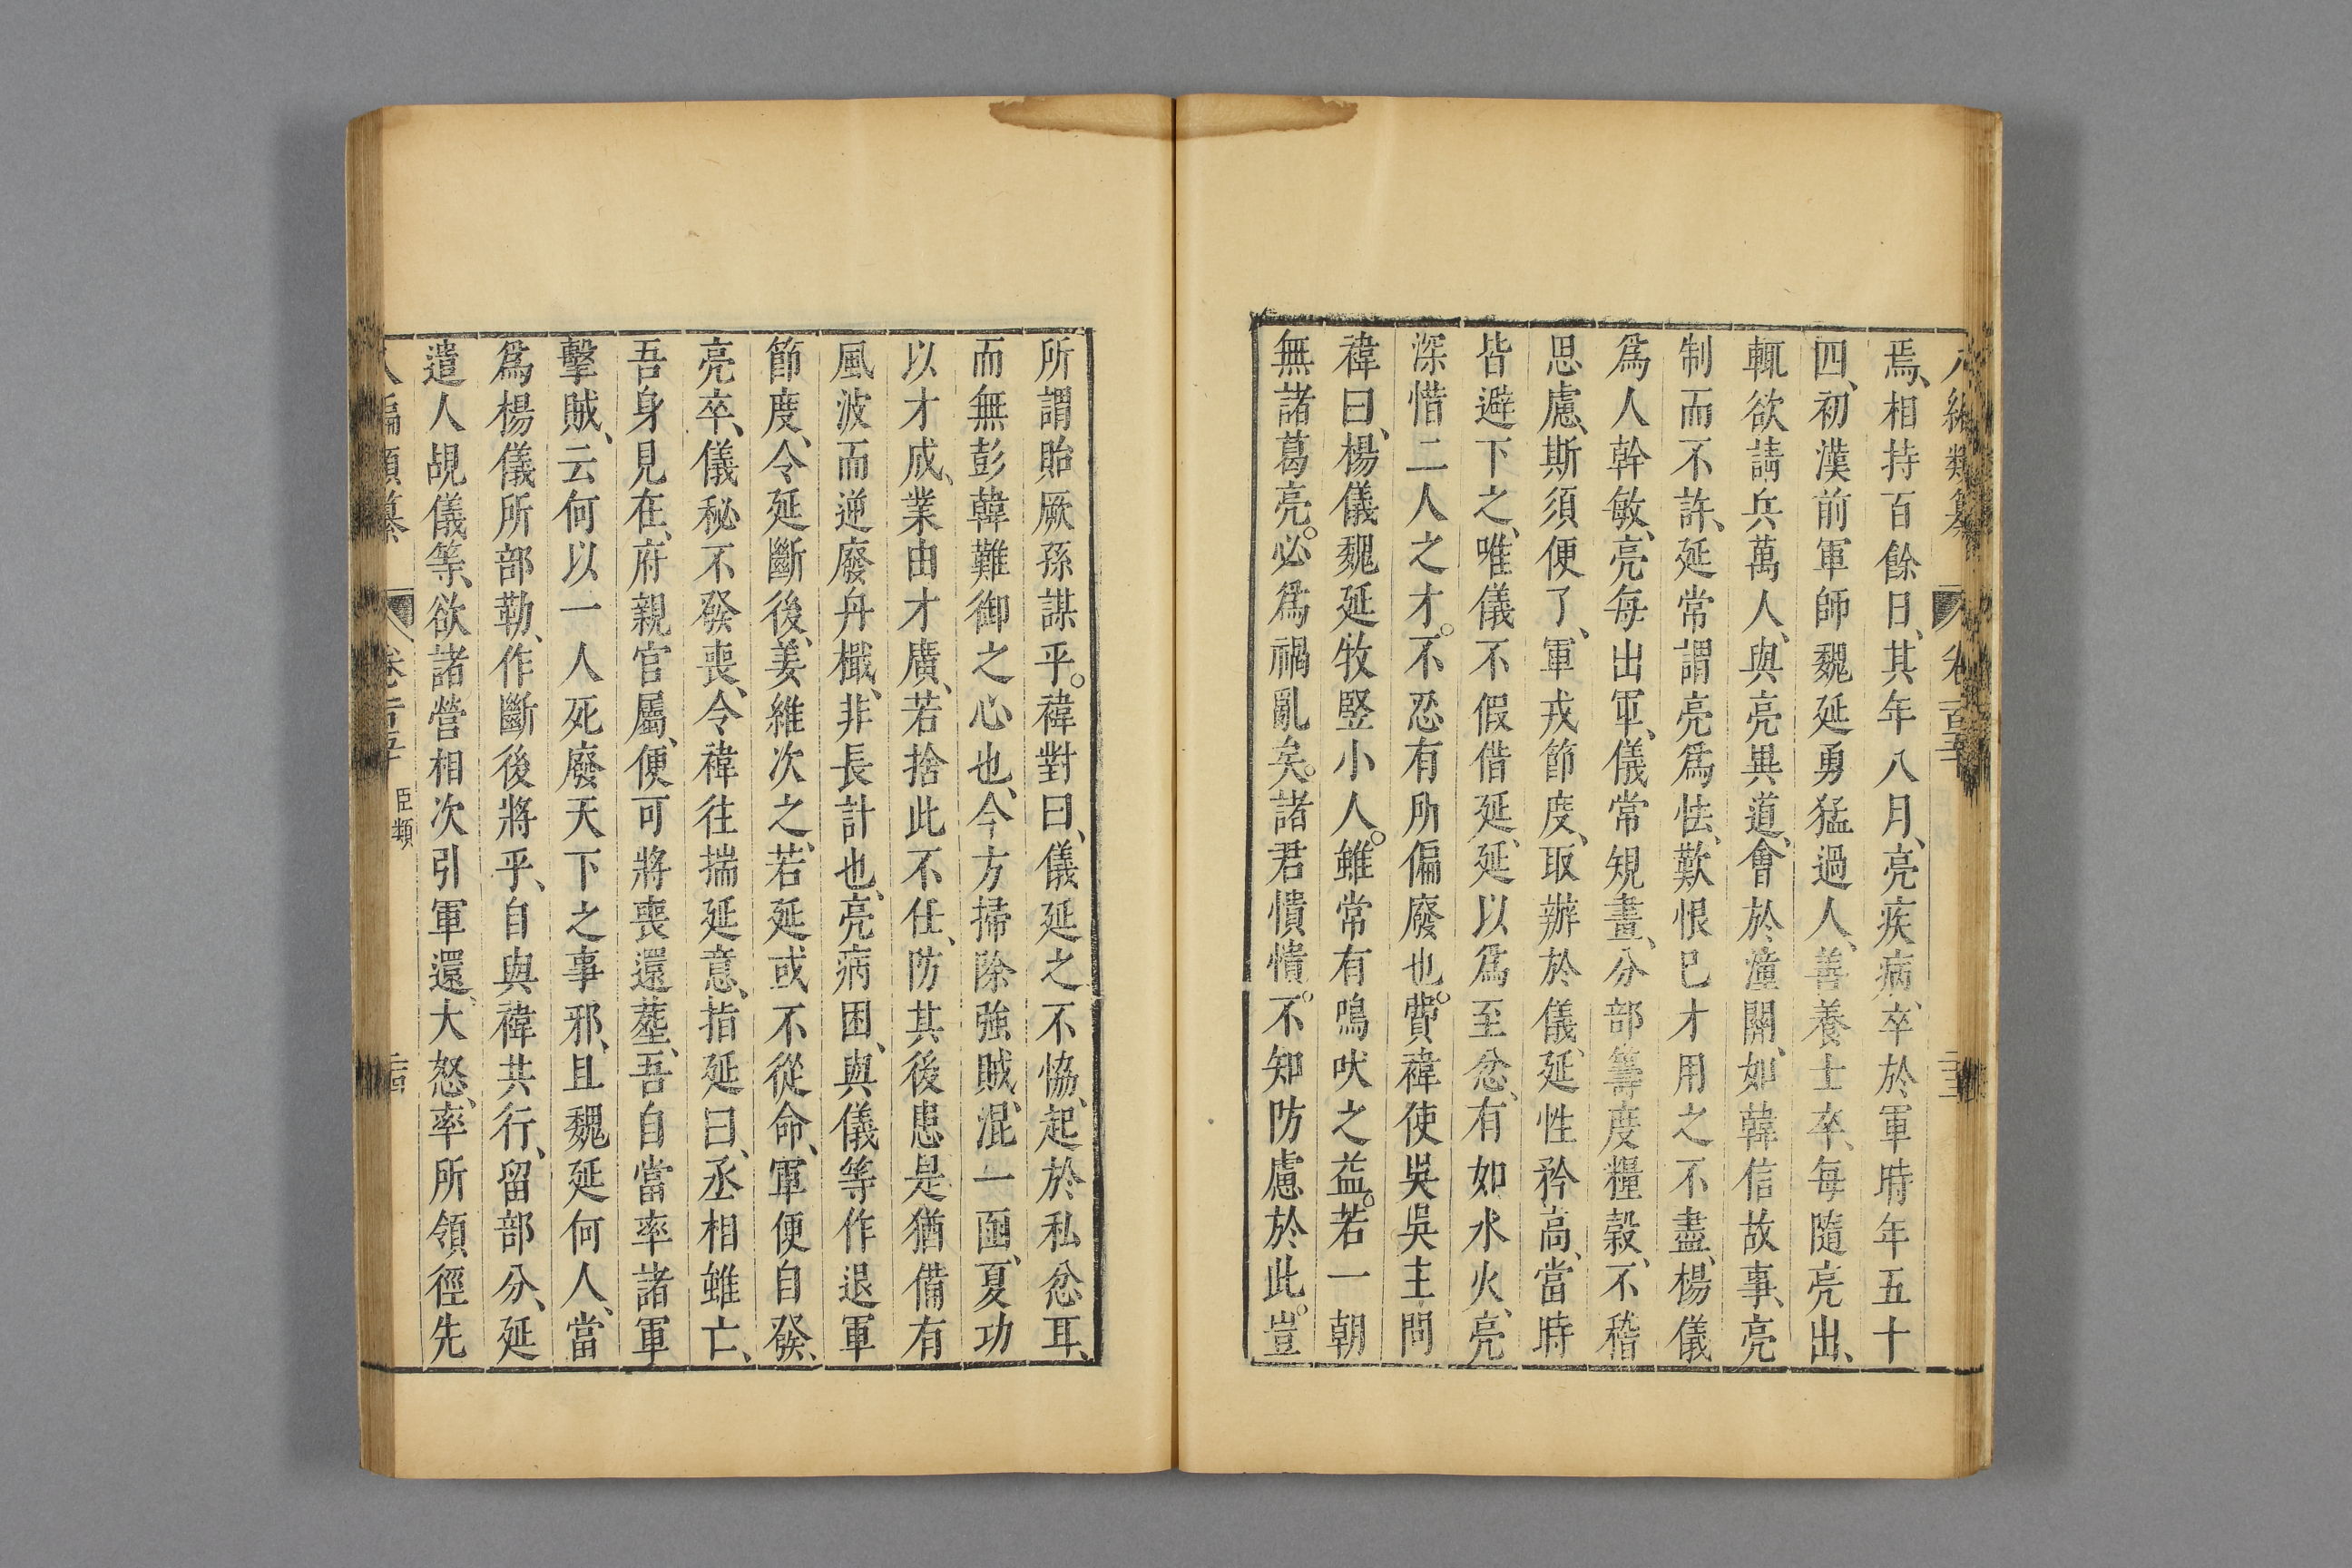 焉、相持百餘日、其年八月、亮疾病、卒於軍時年五十
四、初漢前軍師魏延勇猛過人、善養士卒、每隨亮出、
輒欲請兵萬人、與亮異道、會於潼關、如韓信故事、亮
制而不許、延常謂亮爲怯、歎恨已才用之不盡、楊儀
爲人幹敏、亮每出軍、儀常規畫、分部籌度糧穀、不稽
思慮、斯須便了、軍戎節度、取辦於儀、延性矜高、當時
皆避下之、唯儀不假借延、延以爲至忿、有如水火、亮
深惜二人之才。不忍有所偏廢也。費禕使吳吳主問
禕曰、楊儀魏延牧豎小人。雖常有鳴吠之益。若一朝
無諸葛亮。必爲禍亂矣。諸君憒憒。不知防慮於此。豈
所謂貽厥孫謀乎。禕對曰、儀延之不恊、起於私忿耳、
而無彭韓難御之心也、今方掃除強賊、混一函夏功
以才成、業由才廣、若捨此不任、防其後患是猶備有
風波而逆廢舟檝、非長計也、亮病困、與儀等作退軍
節度、令延斷後、姜維次之、若延或不從命、軍便自發、
亮卒、儀秘不發喪、令禕往揣延意、指延曰、丞相雖亡、
吾身見在、府親官屬、便可將喪還塟、吾自當率諸軍
擊賊、云何以一人死廢天下之事邪、且魏延何人、當
爲楊儀所部勒、作斷後將乎、自與禕共行、留部分、延
遣人覘儀等、欲諸營相次引軍還、大怒、率所領徑先
編類纂 臣類